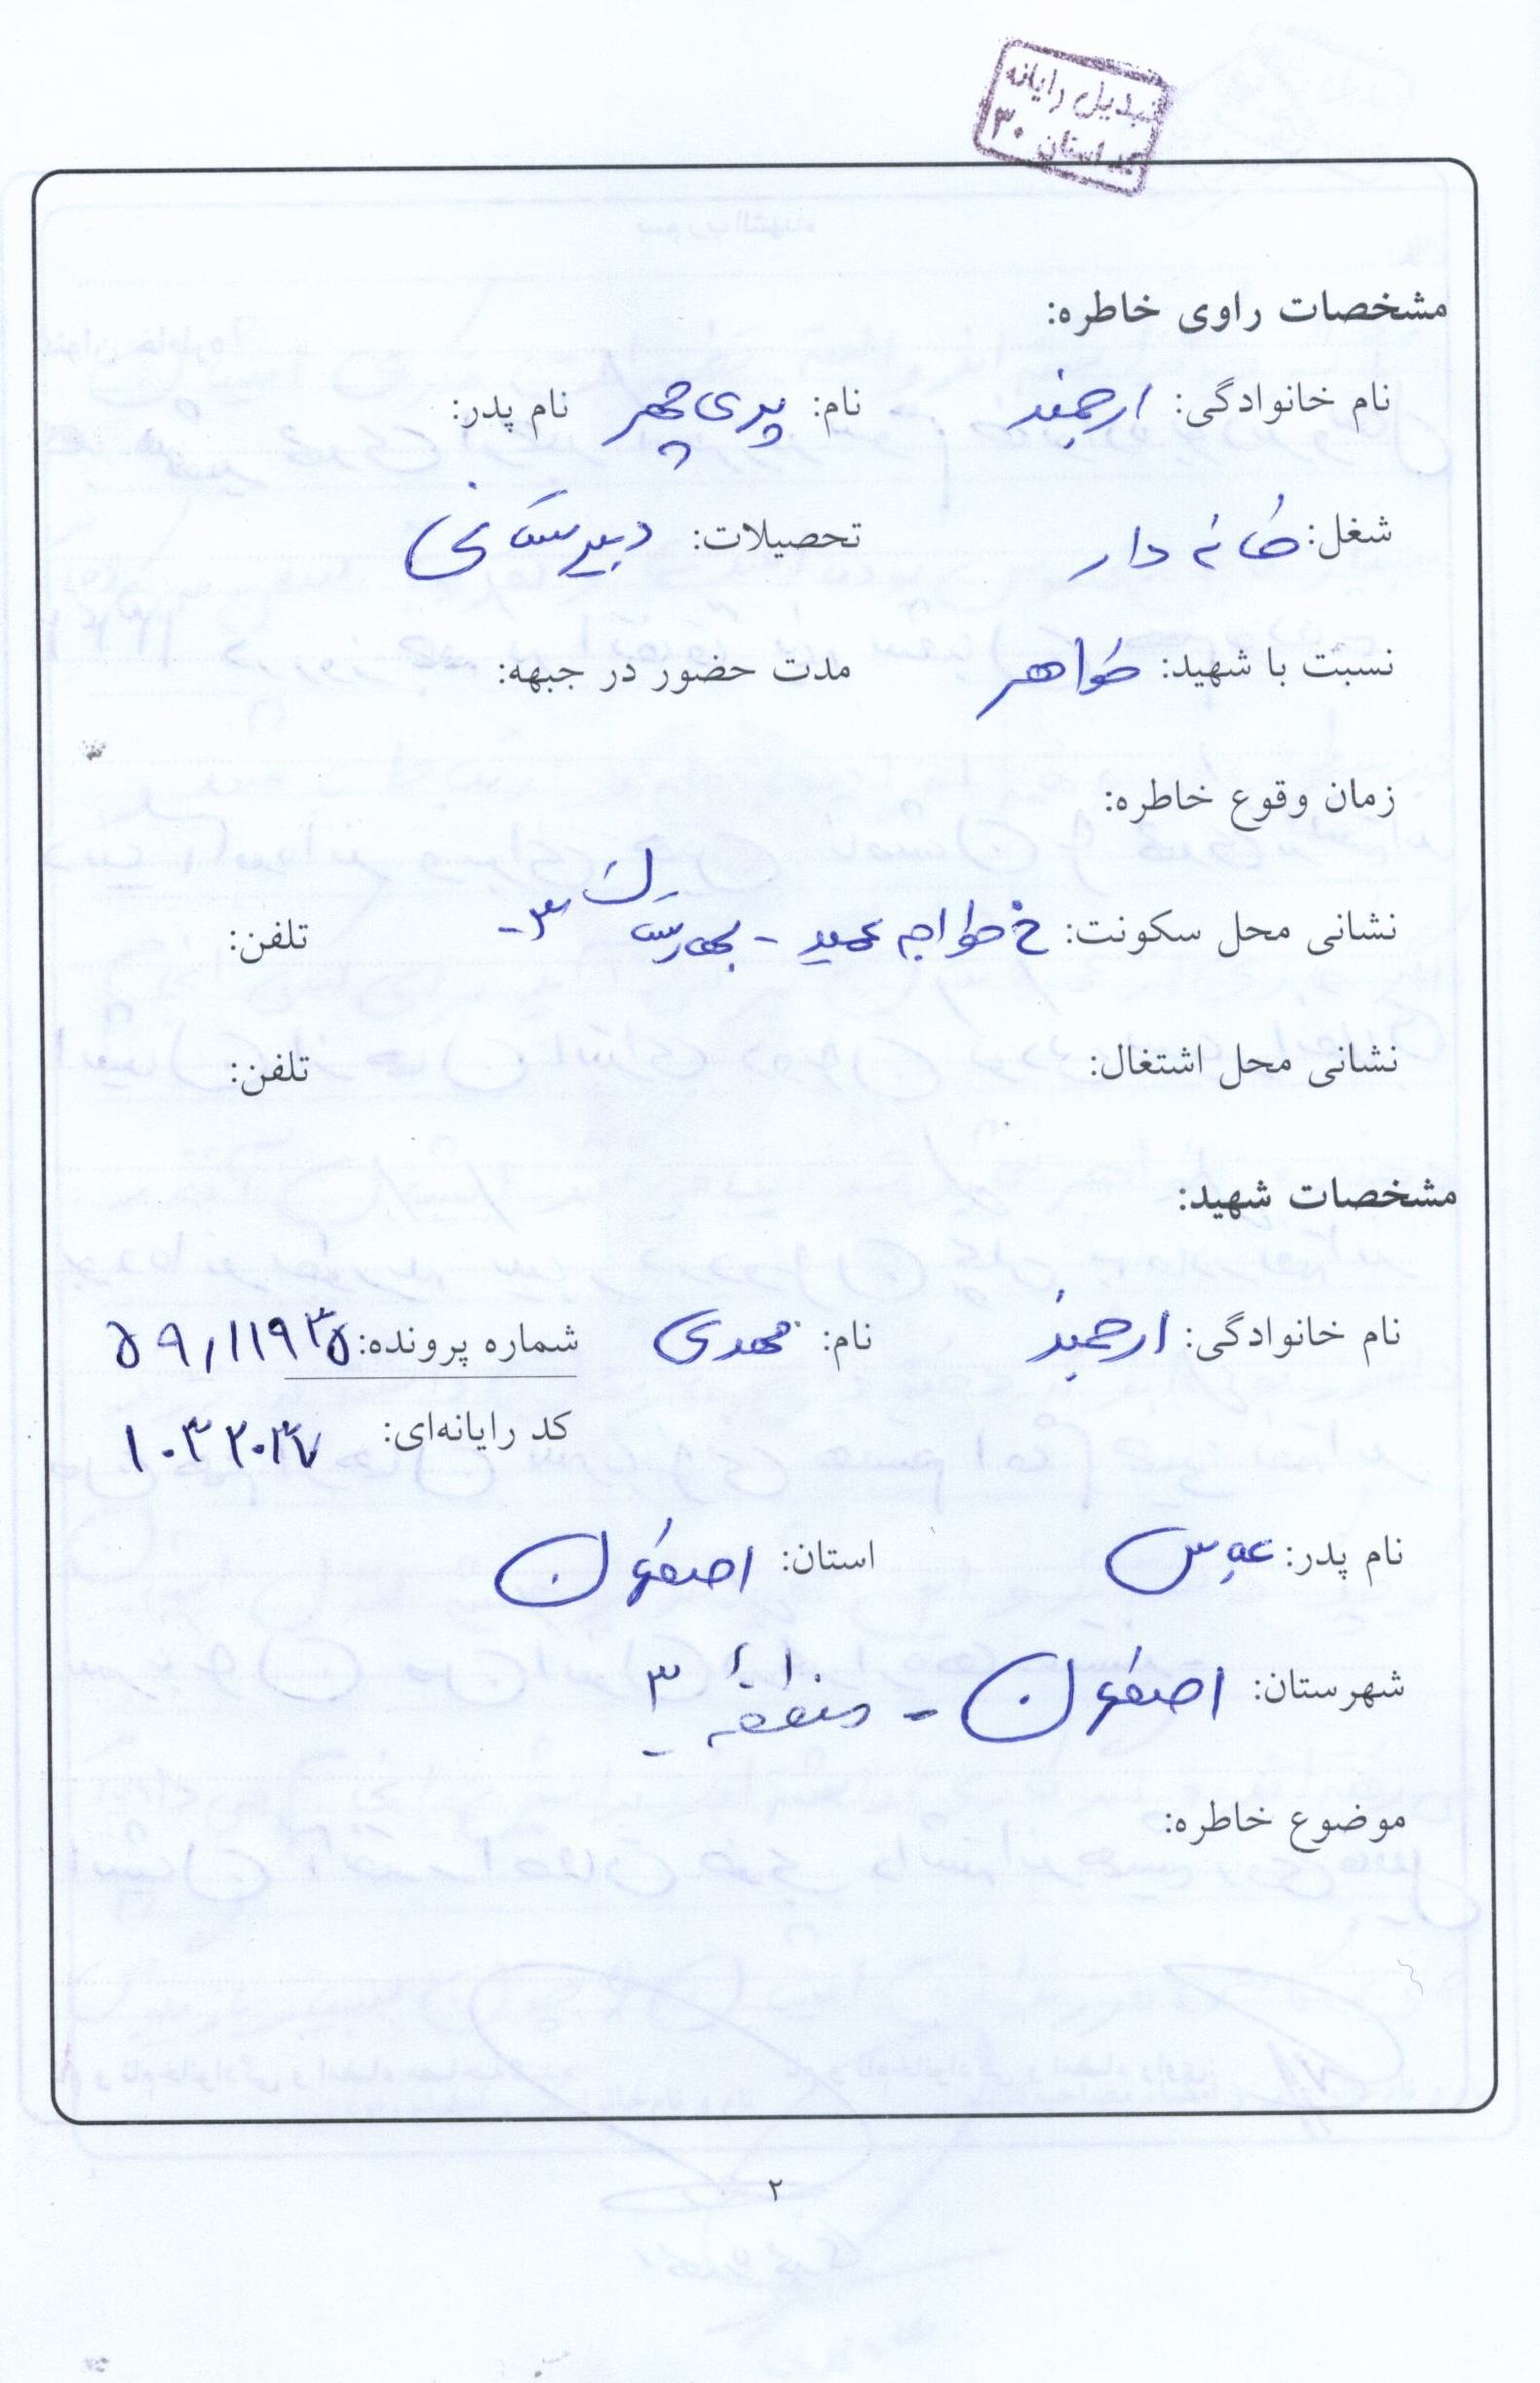 تبدیل رایانه
کد استان ۳۰
مشخصات راوی خاطره:
نام خانوادگی: ارجمند نام: پری چهر نام پدر:
شغل: خانه دار تحصیلات: دبیرستانی
نسبت با شهید: خواهر مدت حضور در جبهه:
زمان وقوع خاطره:
نشانی محل سکونت: خ خواجه عمید - بهارستان ۳ - تلفن:
نشانی محل اشتغال: تلفن:
مشخصات شهید:
نام خانوادگی: ارجمند نام: مهدی شماره پرونده: ۵۹/۱۱۹۳۵
کد رایانه‌ای: ۱۰۳۲۰۳۷
نام پدر: عباس استان: اصفهان
شهرستان: اصفهان - منطقه ۳
موضوع خاطره:
۲